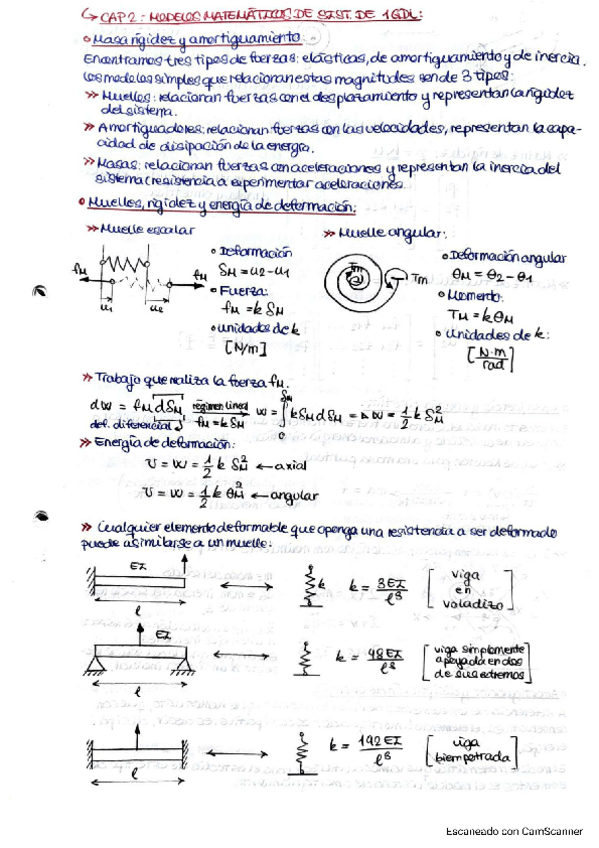 ↳ CAP2: MODELOS MATEMÁTICOS DE SIST. DE 1GDL:
• Masa rigidez y amortiguamiento:
Encontramos tres tipos de fuerzas: elásticas, de amortiguamiento y de inercia.
Los modelos simples que relacionan estas magnitudes son de 3 tipos:
>> Muelles: relacionan fuerzas con el desplazamiento y representan la rigidez
del sistema.
>> Amortiguadores: relacionan fuerzas con las velocidades, representan la capa-
cidad de disipación de la energía.
>> Masas: relacionan fuerzas con aceleraciones y representan la inercia del
sistema (resistencia a experimentar aceleraciones.
• Muelles, rigidez y energía de deformación:
>> Muelle escalar
fM fM
u1 u2
• Deformación
δM = u2 - u1
• Fuerza:
fM = k δM
• unidades de k
[N/m]
>> Muelle angular:
Tm Tm
• Deformación angular
θM = θ2 - θ1
• Momento:
TM = k θM
• Unidades de k:
[N·m/rad]
>> Trabajo que realiza la fuerza fM.
dW = fM dδM régimen lineal fM = k δM W = ∫0^δM k δM dδM = ΔW = 1/2 k δM²
def. diferencial
>> Energía de deformación:
U = W = 1/2 k δM² ← axial
U = W = 1/2 k θM² ← angular
>> Cualquier elemento deformable que oponga una resistencia a ser deformado
puede asimilarse a un muelle:
EI l k k = 3EI/l³ [viga
en
voladizo]
EI l k = 48EI/l³ [viga simplemente
apoyada en dos
de sus extremos]
l k = 192EI/l³ [viga
biempotrada]
Escaneado con CamScanner